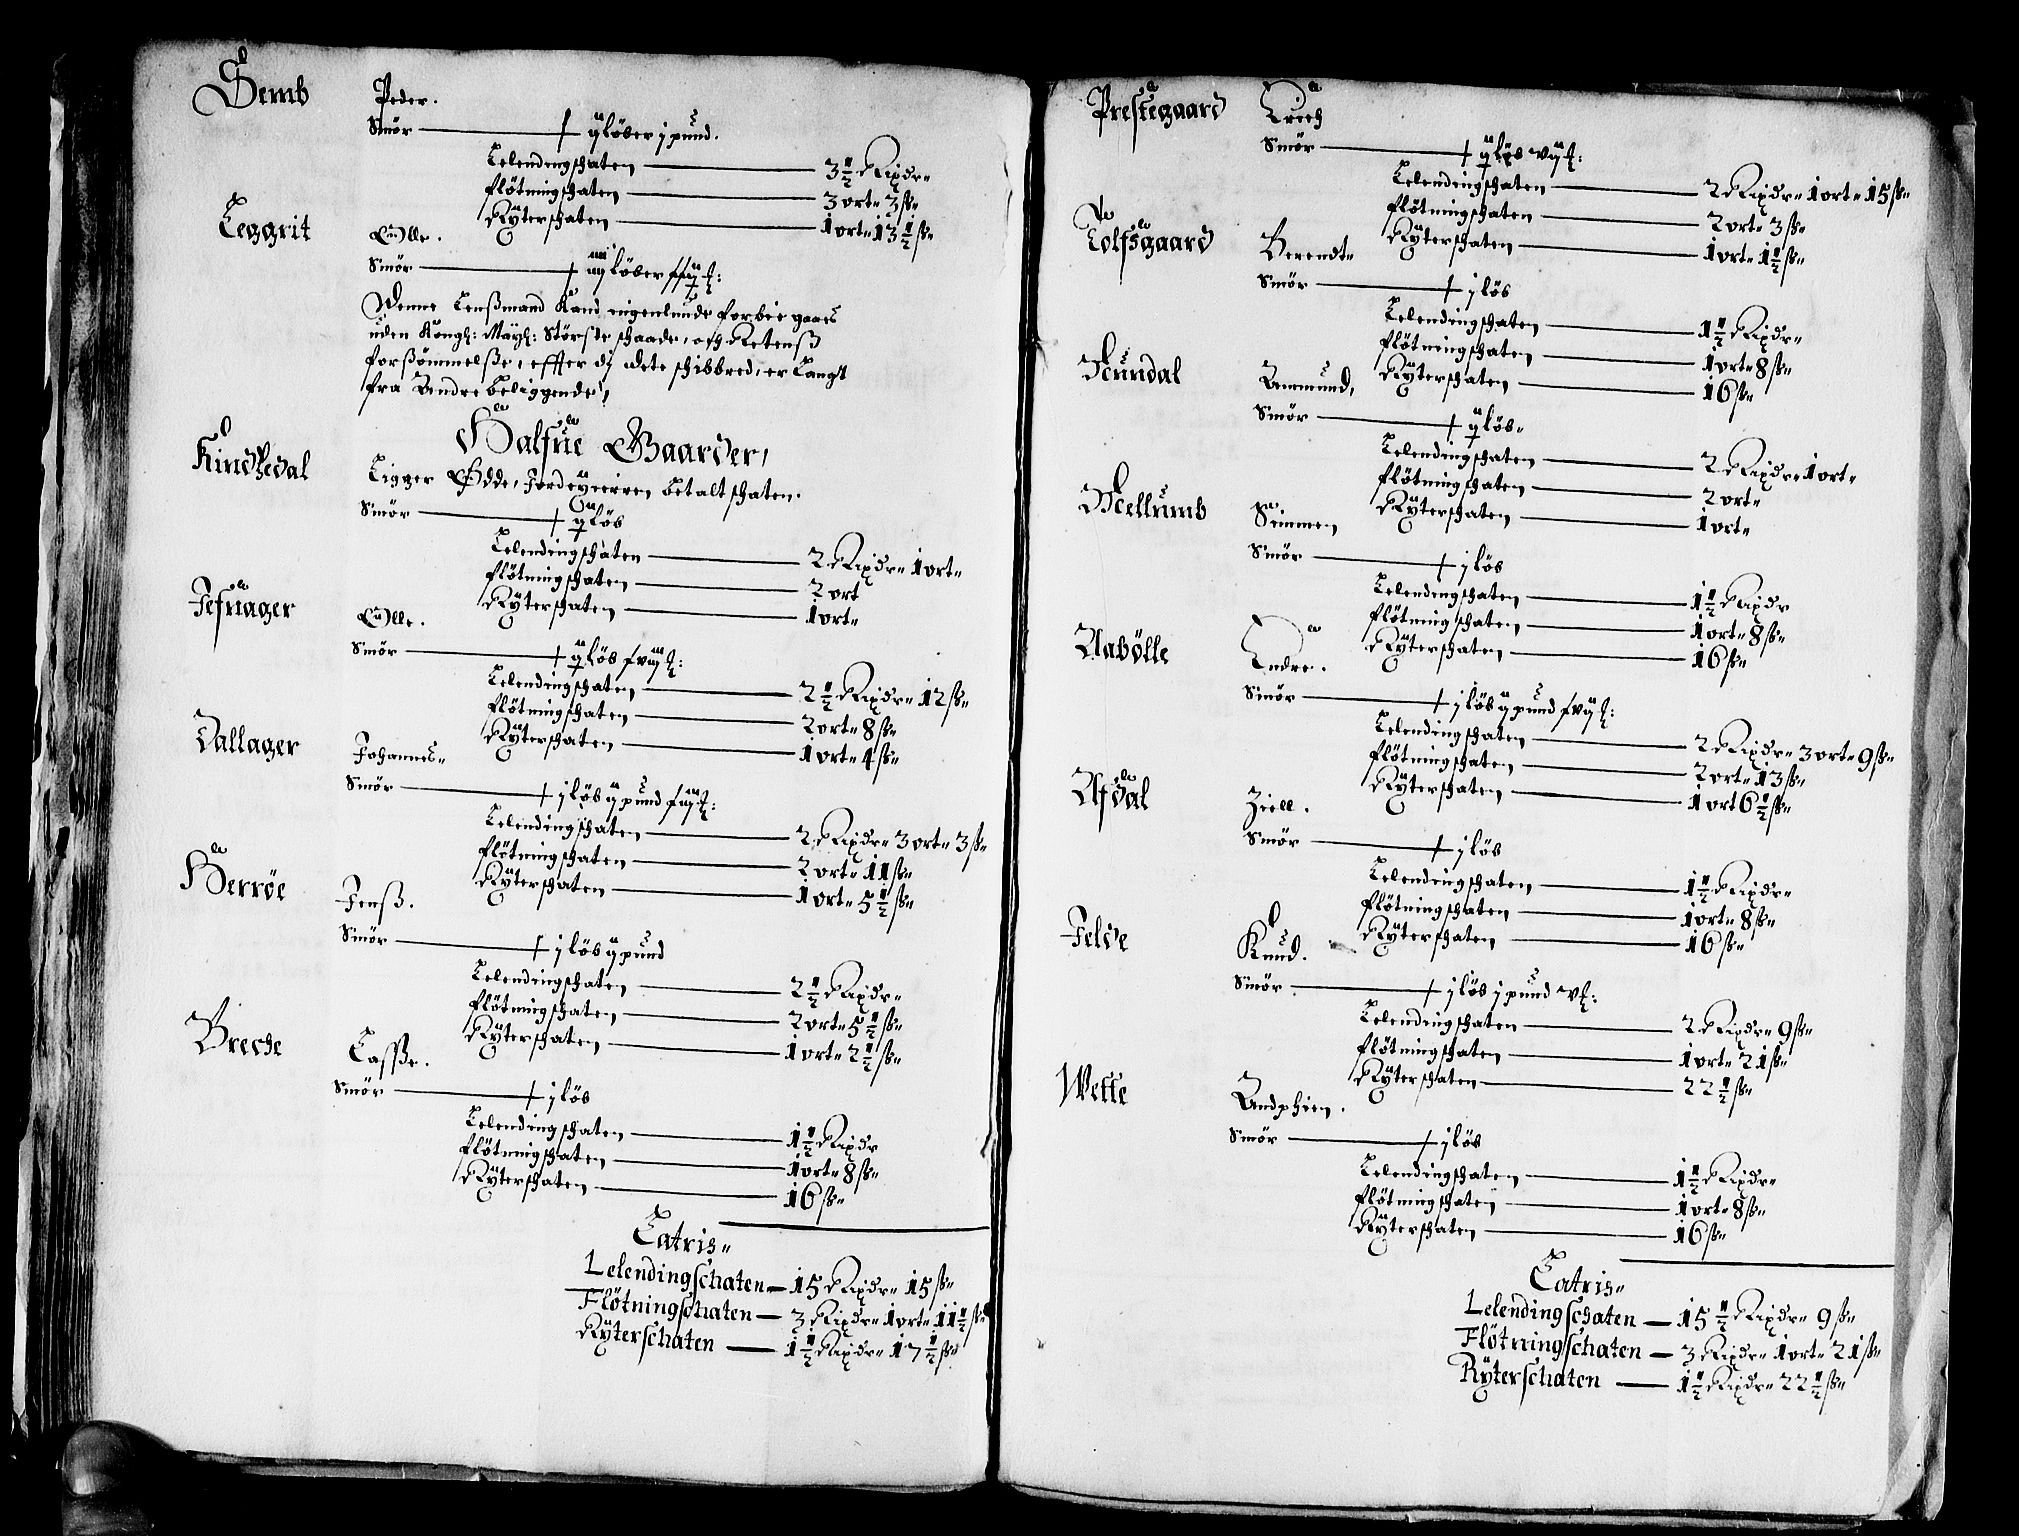 Semb
Peder.
Smör ij löber j pund.
Lelendingschaten 3½ Rixdr
flötningschaten 3 ort 3 ß
Rÿterschaten 1 ort 13½ ß
Leggrit
Olle.
Smör löber
Denne Lenßmand Kand ingenlunde forbie gaaes
uden Kongh: Maÿh: Störste schaade, och Retenß
forsömmelße, effter di dete schibbred, er Langt
fra Andre beliggende,
Halfue Gaarder,
Kindsedal
Ligger Ödde, betalt schaten.
Smör ij löb
Lelendingschaten 2 Rixdr 1 ort
flötningschaten 2 ort
Rÿterschaten 1 ort
Jefnager
Olle.
Smör ij löb
Lelendingschaten 2½ Rixdr 12 ß
flötningschaten 2 ort 8 ß
Rÿterschaten 1 ort 4 ß
Vallager
Johannes
Smör j löb ij pund
Lelendingschaten 2 Rixdr 3 ort 3 ß
flötningschaten 2 ort 11 ß
Rÿterschaten 1 ort 5½ ß
Herröe
Jenß.
Smör j löb ij pund
Lelendingschaten 2½ Rixdr
flötningschaten 2 ort 5½ ß
Rÿterschaten 1 ort 2½ ß
Brecke
Lasße.
Smör j löb
Lelendingschaten 1½ Rixdr
flötningschaten 1 ort 8 ß
Rÿterschaten 16 ß
Latris
Lelendingschaten 15 Rixdr 15 ß
Flötningschaten 3 Rixdr 1 ort 11½ ß
Rÿterschaten 1½ Rixdr 17½ ß
Prestegaard
Erich
Smör ij löb
Lelendingschaten 2 Rixdr 1 ort 15 ß
flötningschaten 2 ort 3 ß
Rÿterschaten 1 ort 1½ ß
Tolfsgaard
Berendt
Smör j löb
Lelendingschaten 1½ Rixdr
flötningschaten 1 ort 8 ß
Rÿterschaten 16 ß
Amund,
Smör ij löb
Lelendingschaten 2 Rixdr 1 ort
flötningschaten 2 ort
Rÿterschaten 1 ort
Mellumb
Simmen,
Smör j löb
Lelendingschaten 1½ Rixdr
flötningschaten 1 ort 8 ß
Rÿterschaten 16 ß
Aabölle
Endre.
Smör j löb ij pund
Lelendingschaten 2 Rixdr 3 ort 9 ß
flötningschaten 2 ort 13 ß
Rÿterschaten 1 ort 6½ ß
Afdal
Ziell.
Smör j löb
Lelendingschaten 1½ Rixdr
flötningschaten 1 ort 8 ß
Rÿterschaten 16 ß
Jelde
Knud.
Smör j löb j pund
Lelendingschaten 2 Rixdr 9 ß
flötningschaten 1 ort 21 ß
Rÿterschaten 22½ ß
Wette
Andphien.
Smör j löb
Lelendingschaten 1½ Rixdr
flötningschaten 1 ort 8 ß
Rÿterschaten 16 ß
Latris
Lelendingschaten 15½ Rixdr 9 ß
Flötningschaten 3 Rixdr 1 ort 21 ß
Rÿterschaten 1½ Rixdr 22½ ß